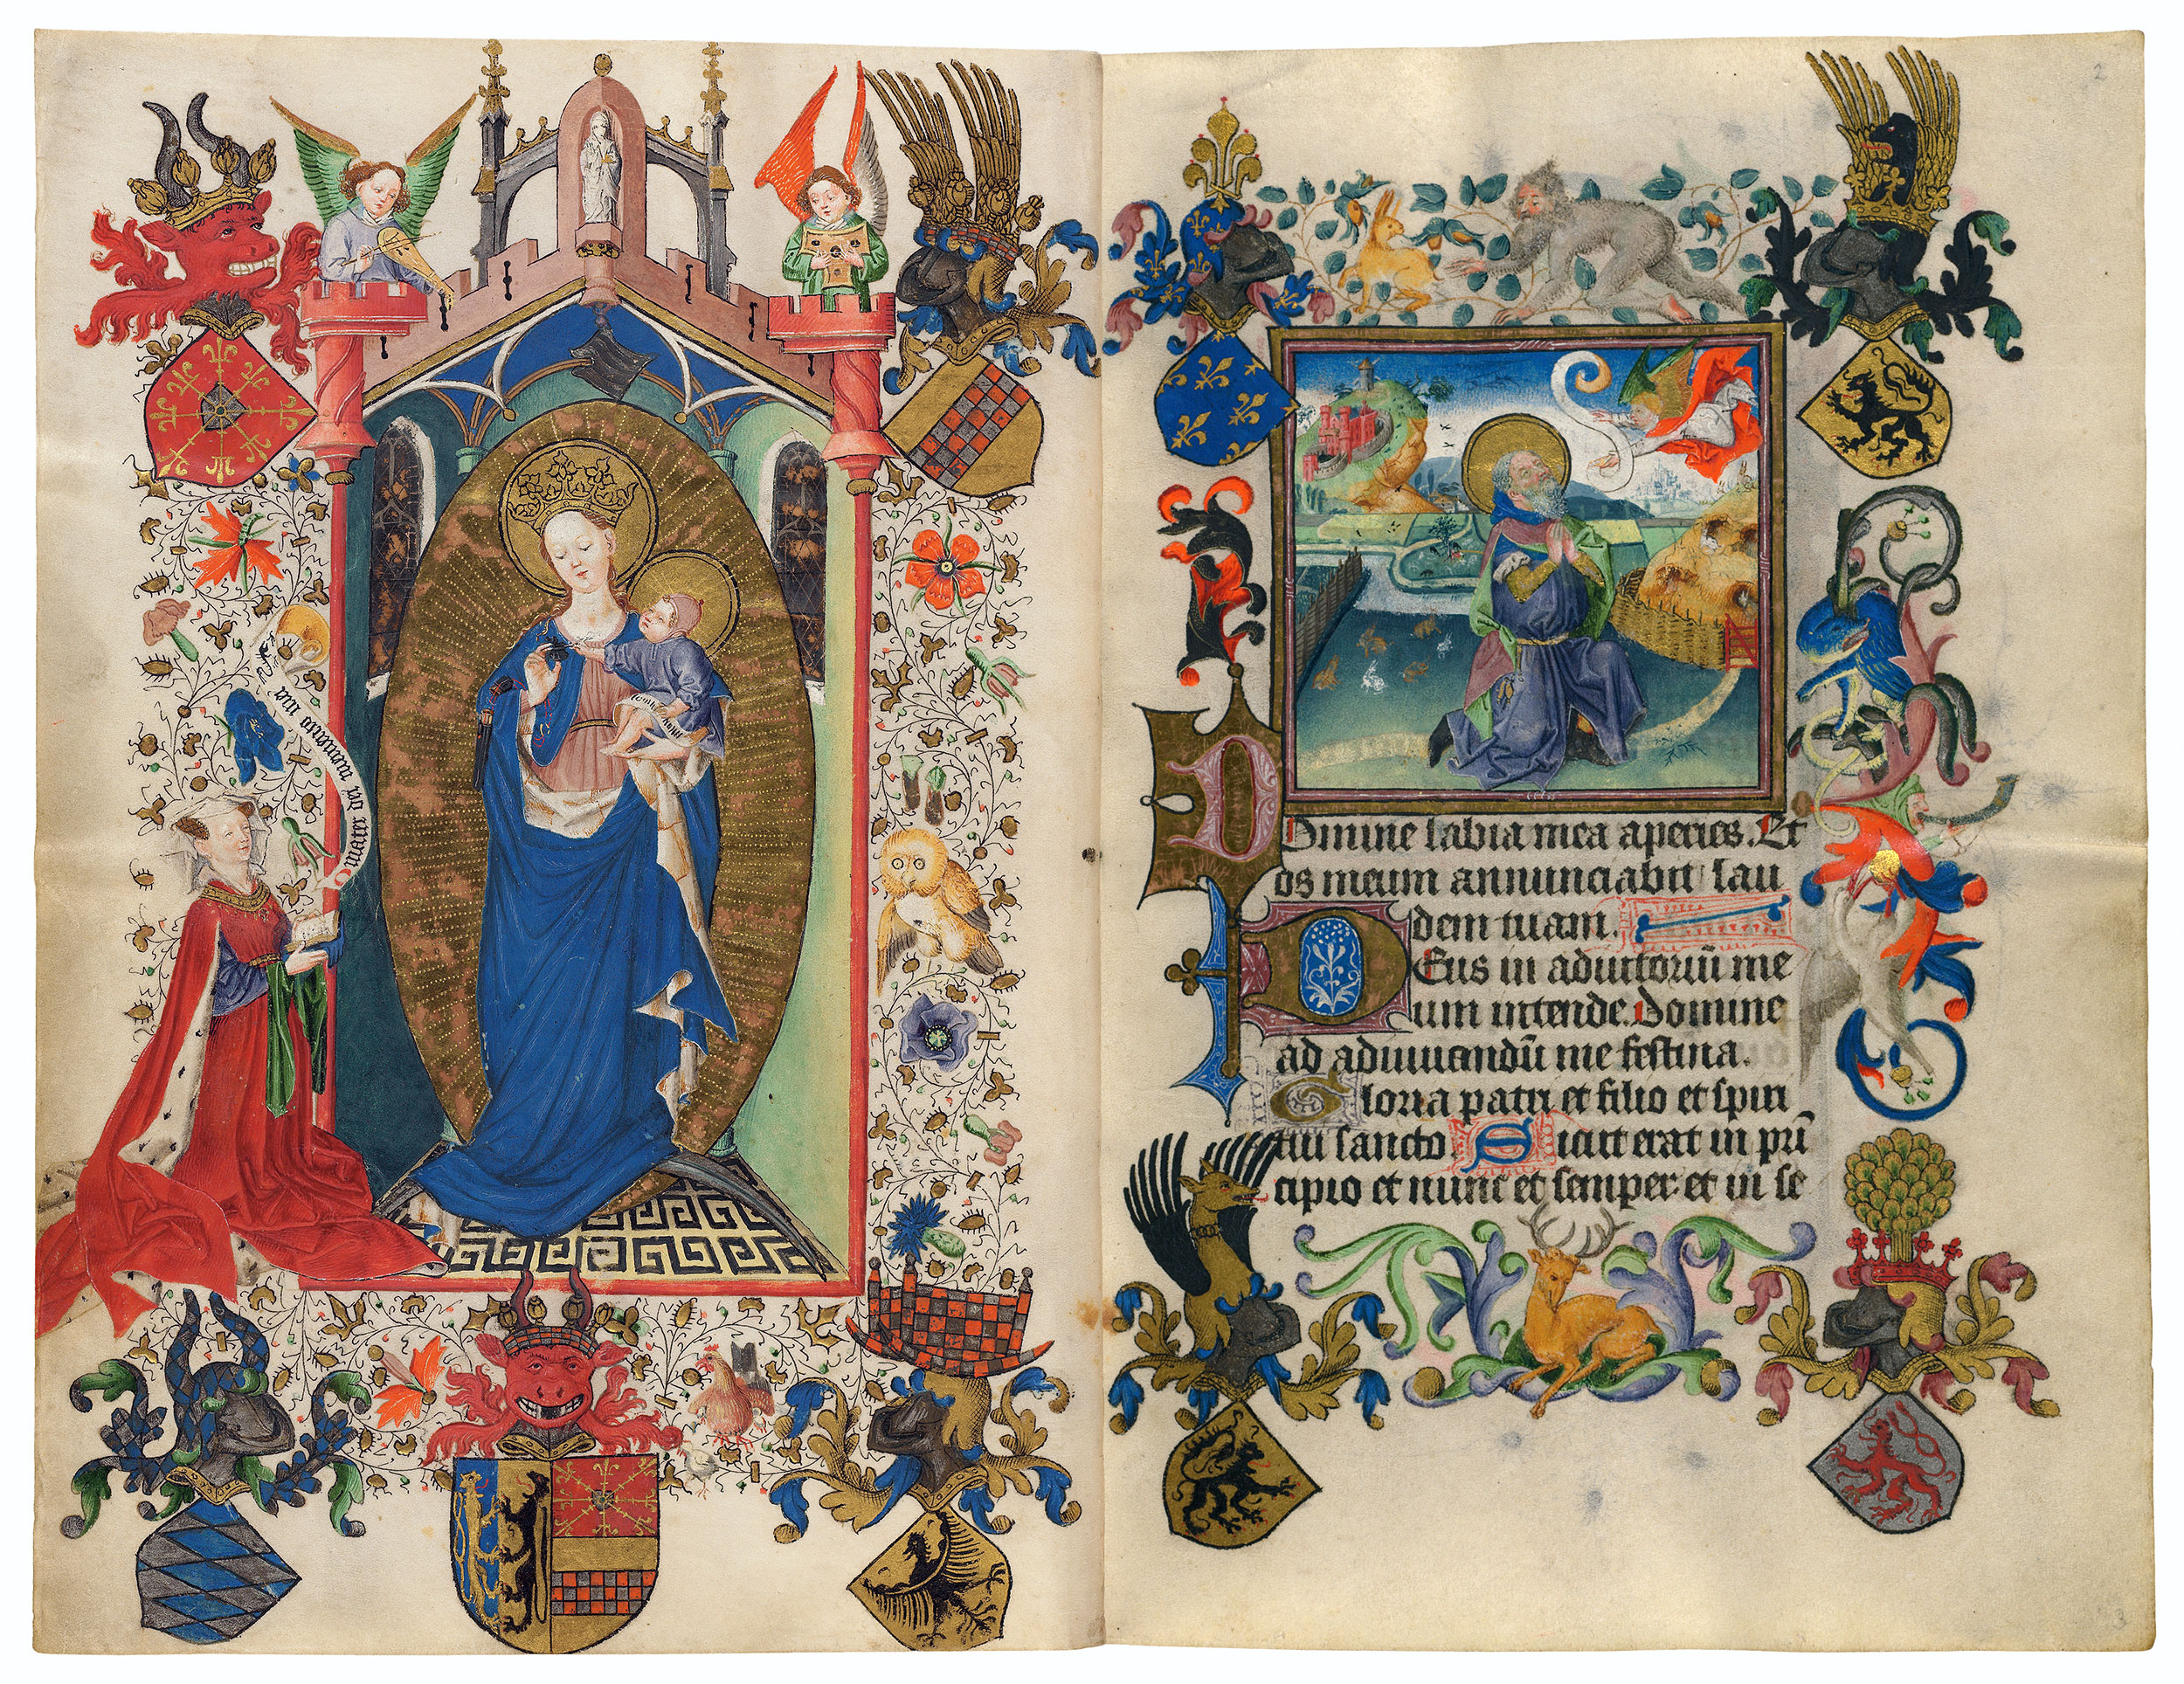 o mater dei memento mei
Domine labia mea aperies. Et
os meum annunciabit lau
dem tuam.
Deus in adiutoriū me
um intende. Domine
ad adiuuandū me festina.
Gloria patri et filio et spiri
tui sancto. Sicut erat in prī
cipio et nunc et semper et in se
2
3